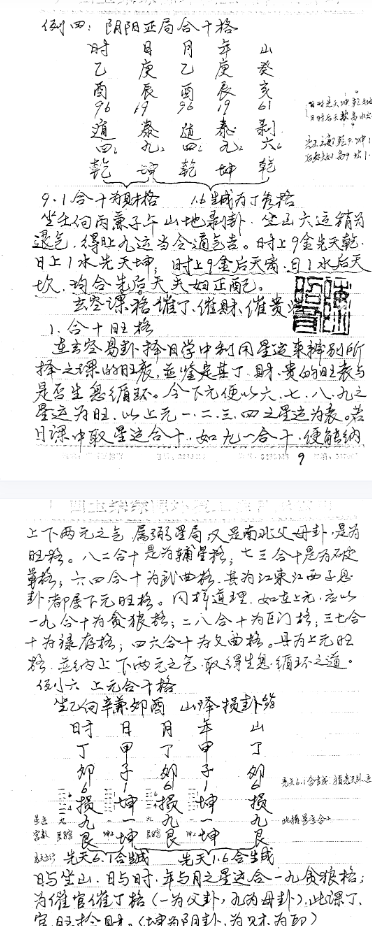 例四：阴阳正局合十格
时 日 月 年 山
乙 庚 乙 庚 癸
酉 辰 酉 辰 亥
96 19 96 19 61
泰 剥
四 九 四 九 六
乾 坤 乾
9.1合十为财格 1.6生成为丁贵格
坐壬向丙兼子午 山地剥卦 坐山六运稍为
退气，得九运当令通气吉。时上9金先天乾
日上1水先天坤，时上9金后天离，日1水后天
坎，均合先后天夫妇正配。
玄空课格催丁、催财、催贵
1、合十旺格
在玄空易卦择日学中利用星运来辨别所
择之课的旺衰，并鉴定其丁、财、贵的旺衰与
是否生息循环。今下元便以六、七、八、九之
星运为旺，以上元一、二、三、四之星运为衰。若
日课中取星运合十，如九一合十，便能纳
9
上下两元之气 属弼星局 又是南北父母卦，是为
旺格。八二合十是为辅星格；七三合十是为破
军格；六四合十为武曲格，其为江东江西子息
卦都属下元旺格。同样道理，如在上元，应以
一九合十为贪狼格；二八合十为巨门格；三七合
十为禄存格；四六合十为文曲格。具为上元旺
格，并纳上下两元之气，取得生息循环之道。
例六 上元合十格
坐乙向辛兼卯酉 山泽损卦
时 日 月 年 山
丁 甲 丁 甲 丁
卯 子 卯 子 卯
6 1 6 1 6
损 坤 损 坤 损
九 一 九 一 九
艮 坤 艮 坤 艮
先天6.1合生成 先天1.6合生成
日与坐山、日与时、年与月之星运合一九贪狼格；
为催官催丁格（一为父卦，九为母卦），此课丁、
官旺于财。（坤为阴卦，为